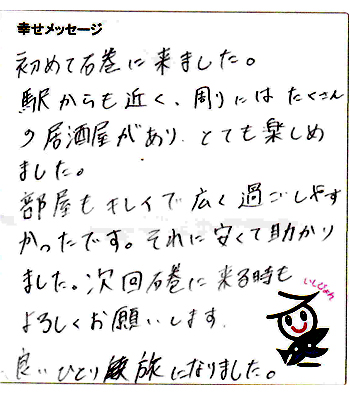 幸せメッセージ
初めて石巻に来ました。
駅からも近く、周りには たくさん
の居酒屋があり、とても楽しめ
ました。
部屋もキレイで広く過ごしやす
かったです。それに安くて助かり
ました。次回石巻に来る時も
よろしくお願いします.
いしぴょん
良いひとり旅になりました。